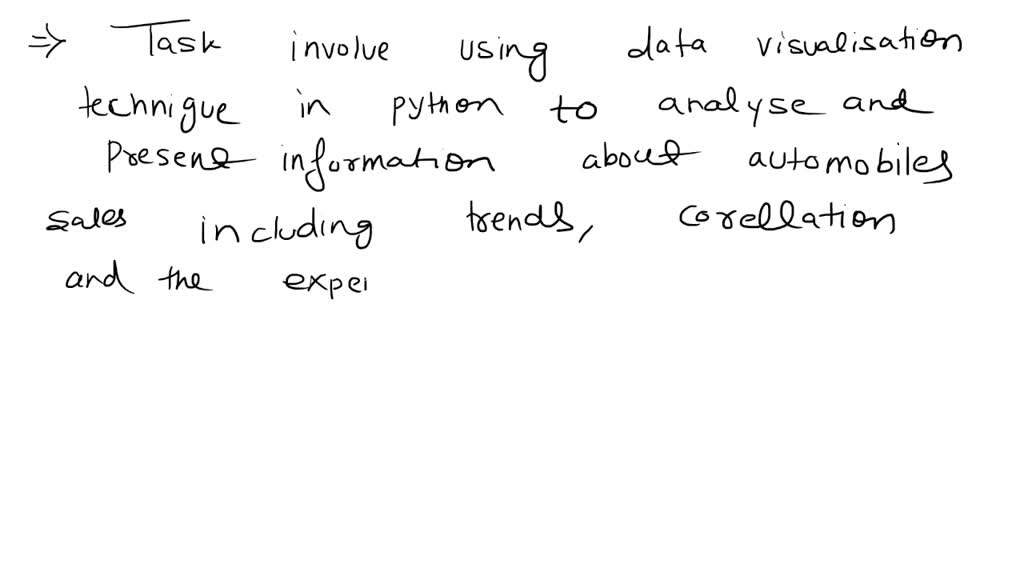 ⇒ Task involve using data visualisation
technique in python to analyse and
Present information about automobiles
sales including trends, corellation
and the exper